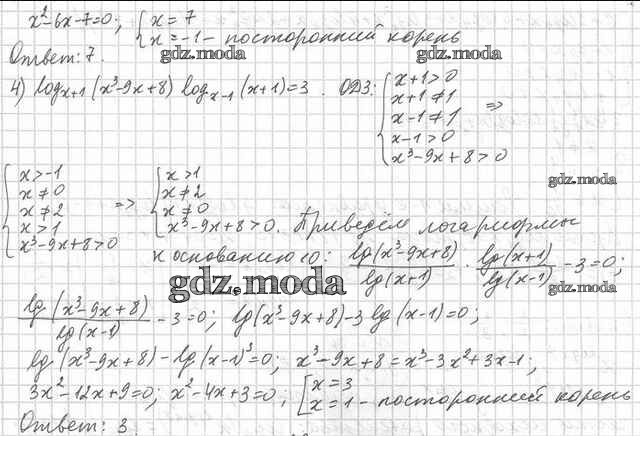 x²-6x-7=0; { x=7
x=-1 - посторонний корень
Ответ: 7.
gdz.moda
gdz.moda
4) log_{x+1}(x³-9x+8) log_{x-1}(x+1)=3. ОДЗ: { x+1>0
x+1≠1
x-1≠1 =>
x-1>0
x³-9x+8>0
gdz.moda
{ x>-1
x≠0
x≠2 =>
x>1
x³-9x+8>0
{ x>1
x≠2
x≠0
x³-9x+8>0. Приведём логарифмы
к основанию 10: lg(x³-9x+8)/lg(x+1) · lg(x+1)/lg(x-1) -3=0;
gdz.moda
gdz.moda
lg(x³-9x+8)/lg(x-1) -3=0; lg(x³-9x+8)-3lg(x-1)=0;
lg(x³-9x+8)-lg(x-1)³=0; x³-9x+8=x³-3x²+3x-1;
3x²-12x+9=0; x²-4x+3=0; [ x=3
x=1 - посторонний корень
Ответ: 3